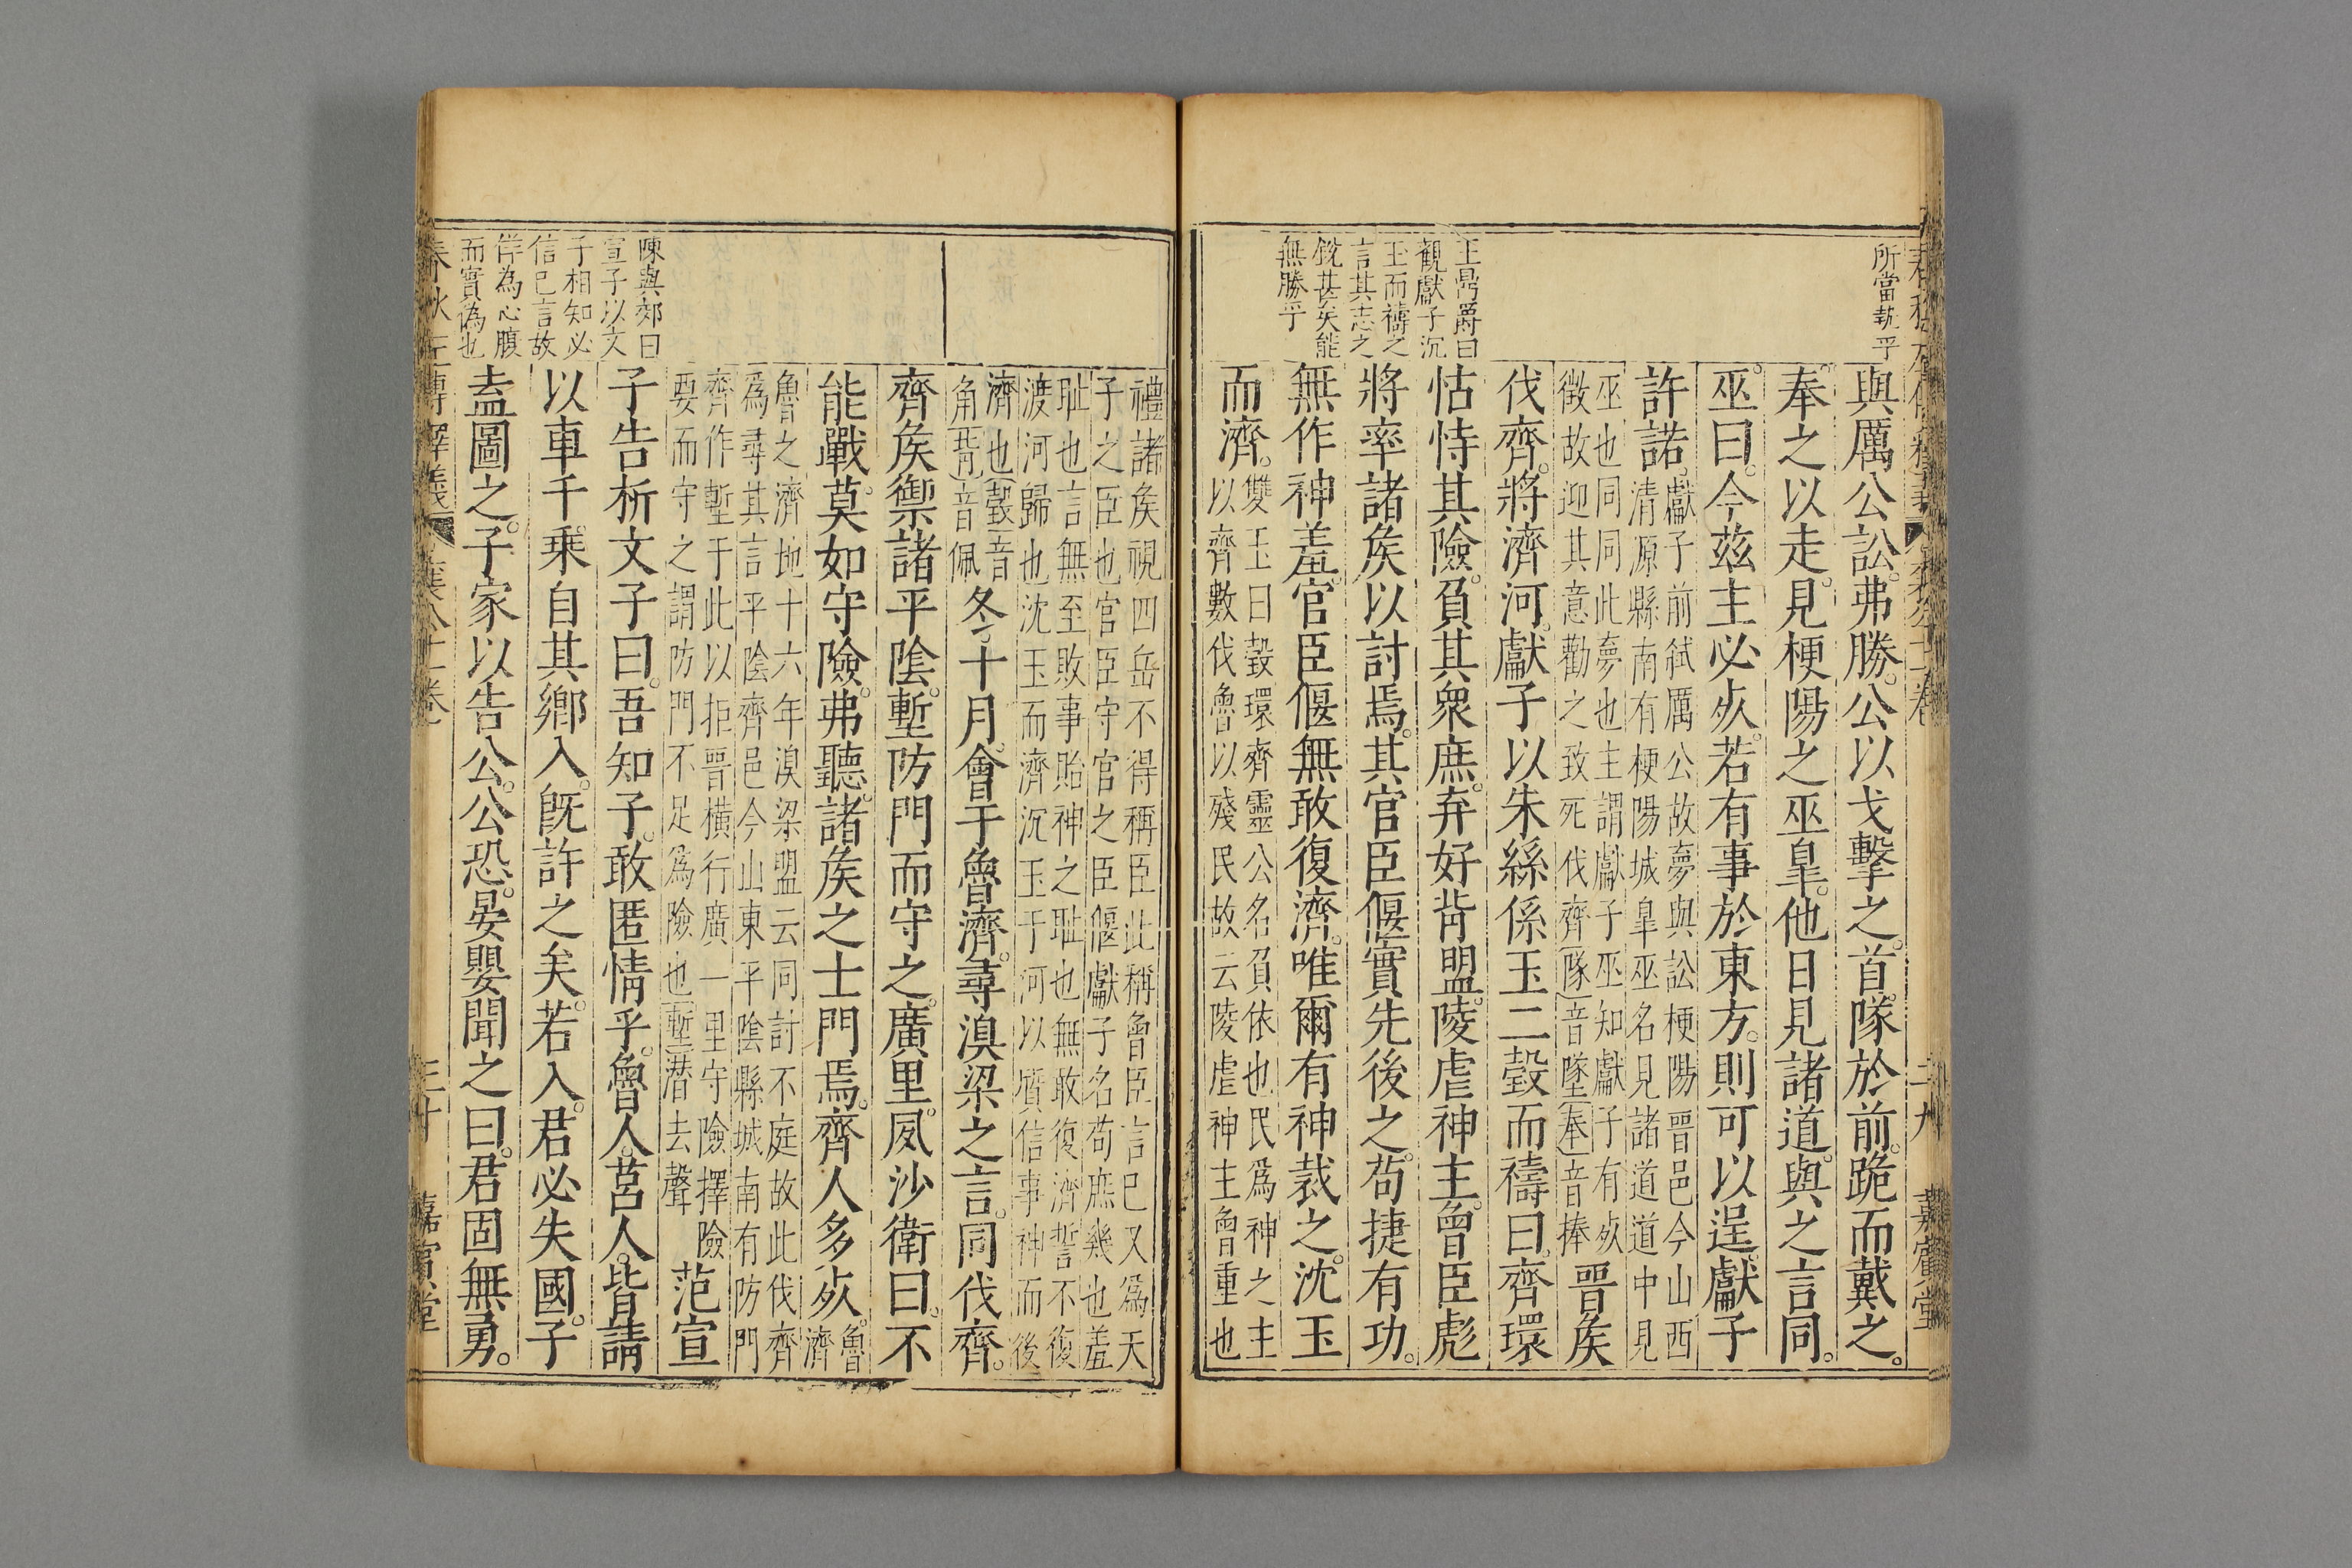 所當執乎
王鼎爵曰
觀獻子沉
玉而禱之
言其志之
銳甚矣能
無勝乎
與厲公訟弗勝公以戈擊之首隊於前跪而戴之
奉之以走見梗陽之巫皐他日見諸道與之言同
巫曰今茲主必死若有事於東方則可以逞獻子
許諾
獻子前弑厲公故夢與訟梗陽晋邑今山西
清源縣南有梗陽城皐巫名見諸道道中見
巫也同同此夢也主謂獻子巫知獻子有死
徵故迎其意勸之致死伐齊隊音墜奉音捧
晋矦
伐齊將濟河獻子以朱絲係玉二瑴而禱曰齊環
怙恃其險負其衆庶弃好背盟陵虐神主曾臣彪
將率諸矦以討焉其官臣偃實先後之苟捷有功
無作神羞官臣偃無敢復濟唯爾有神裁之沈玉
而濟
雙玉曰瑴環齊靈公名負依也民爲神之主
以齊數伐魯以殘民故云陵虐神主曾重也
陳與郊曰
宣子以文
子相知必
信已言故
佯為心腹
而實偽也
禮諸矦視四岳不得稱臣此稱曾臣言已又爲天
子之臣也官臣守官之臣偃獻子名苟庶幾也羞
耻也言無至敗事貽神之耻也無敢復濟誓不復
渡河歸也沈玉而濟沉玉于河以質信事神而後
濟也瑴音
角背音佩
冬十月會于魯濟尋溴梁之言同伐齊
齊矦禦諸平隂塹防門而守之廣里夙沙衛曰不
能戰莫如守險弗聽諸矦之士門焉齊人多死
魯濟
魯之濟地十六年溴梁盟云同討不庭故此伐齊
爲尋其言平隂齊邑今山東平隂縣城南有防門
齊作塹于此以拒晋橫行廣一里守險擇險
要而守之謂防門不足爲險也塹潜去聲
范宣
子告析文子曰吾知子敢匿情乎魯人莒人皆請
以車千乘自其鄉入旣許之矣若入君必失國子
盍圖之子家以告公公恐晏嬰聞之曰君固無勇
春秋左傳釋義
襄公十二卷
三十
嘉賓堂